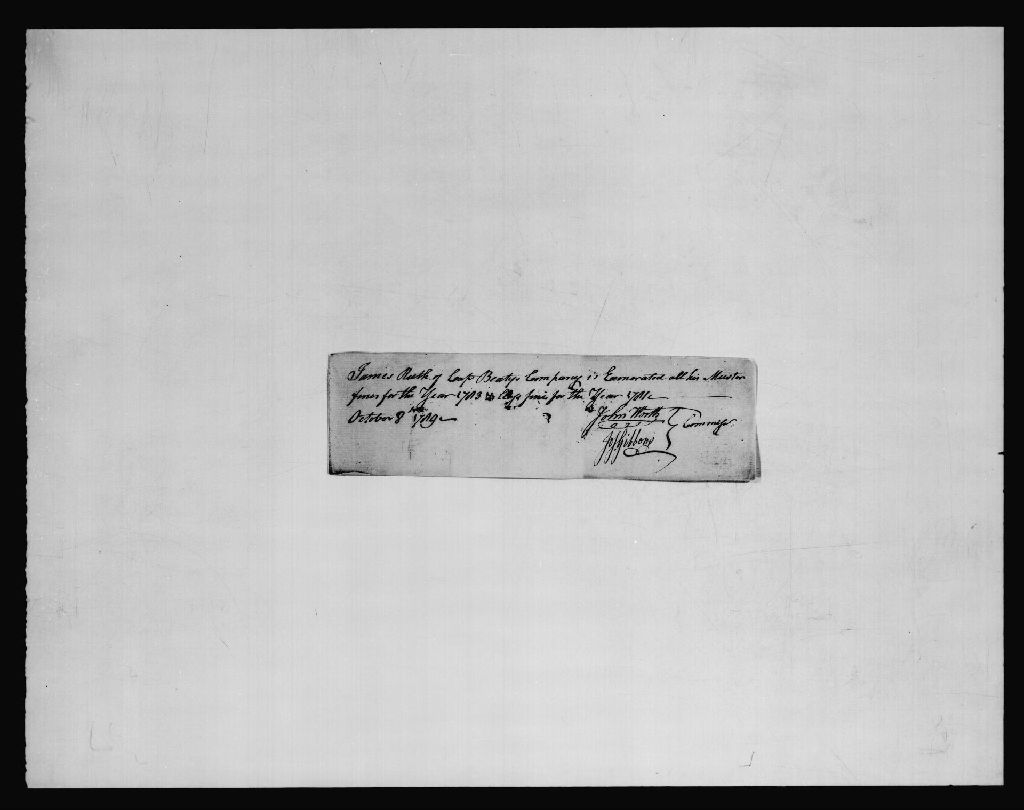 James Ruth of Capt Beatys Company is Exonerated all his Muster
fines for the Year 1783 & Class fine for the Year 1781
October 8th 1789
John Worth
Jas Gibbons
Commisrs